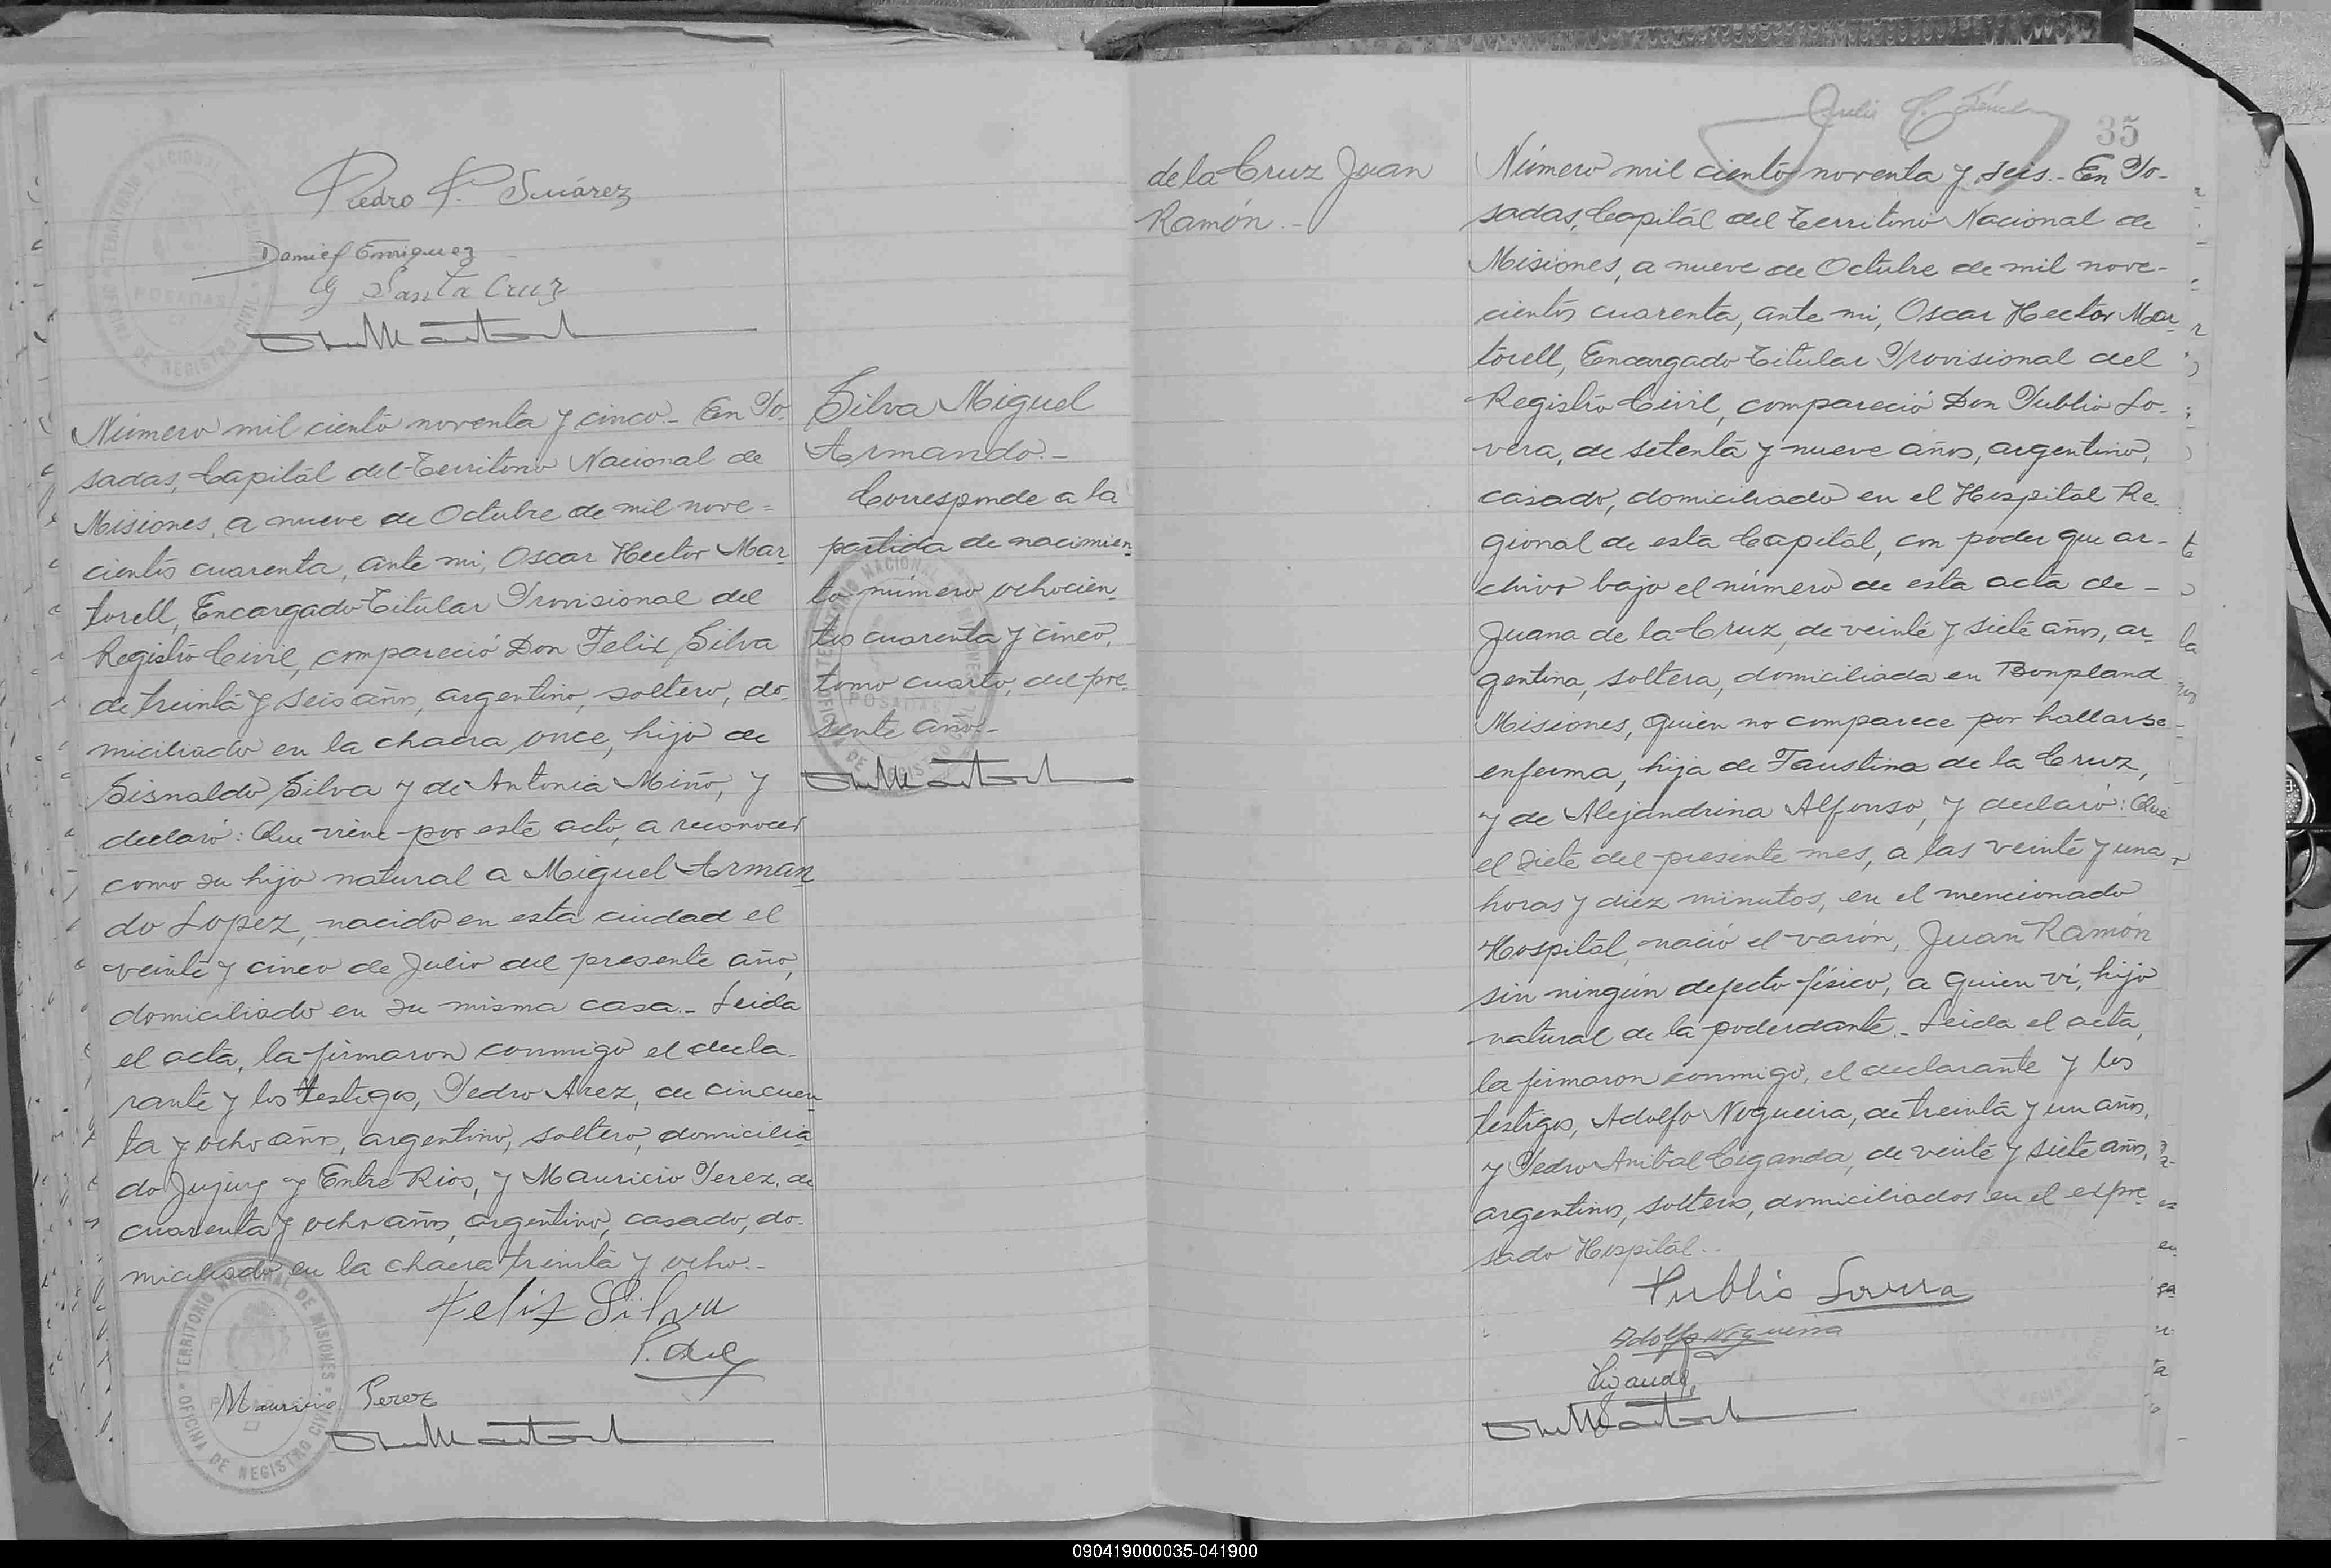 Pedro P. Suárez
Daniel Enriquez
G Santa Cruz
TERRITORIO NACIONAL DE MISIONES
OFICINA DE REGISTRO CIVIL
POSADAS
Número mil ciento noventa y cinco.- En Po-
sadas, Capital del Territorio Nacional de
Misiones, a nueve de Octubre de mil nove=
cientos cuarenta, ante mi, Oscar Hector Mar-
torell, Encargado Titular Provisional del
Registro Civil, compareció Don Felix Silva
de treinta y seis años, argentino, soltero, do-
miciliado en la chacra once, hijo de
Sisnaldo Silva y de Antonia Miño, y
declaró: Que viene por este acto, a reconocer
como su hijo natural a Miguel Arman-
do Lopez, nacido en esta ciudad el
veinte y cinco de Julio del presente año,
domiciliado en su misma casa.- Leida
el acta, la firmaron conmigo el decla-
rante y los testigos, Pedro Arez, de cincuen-
ta y ocho años, argentino, soltero, domicilia-
do Jujuy y Entre Rios, y Mauricio Perez, de
cuarenta y ocho años, argentino, casado, do-
miciliado en la chacra treinta y ocho.-
Felix Silva
Mauricio Perez
TERRITORIO NACIONAL DE MISIONES
OFICINA DE REGISTRO CIVIL
Silva Miguel
Armando.-
Corresponde a la
partida de nacimien-
to número ochocien-
tos cuarenta y cinco,
tomo cuarto, del pre-
sente año.-
TERRITORIO NACIONAL DE MISIONES
OFICINA DE REGISTRO CIVIL
POSADAS
de la Cruz Juan
Ramón.-
35
Número mil ciento noventa y seis.- En Po-
sadas, Capital del Territorio Nacional de
Misiones, a nueve de Octubre de mil nove-
cientos cuarenta, ante mi, Oscar Hector Mar-
torell, Encargado Titular Provisional del
Registro Civil, compareció Don Publio Lo-
vera, de setenta y nueve años, argentino,
casado, domiciliado en el Hospital Re-
gional de esta Capital, con poder que ar-
chivo bajo el número de esta acta de -
Juana de la Cruz, de veinte y siete años, ar-
gentina, soltera, domiciliada en Bonpland
Misiones, quien no comparece por hallarse
enferma, hija de Faustina de la Cruz,
y de Alejandrina Alfonso, y declaró: Que
el siete del presente mes, a las veinte y una
horas y diez minutos, en el mencionado
Hospital, nació el varón, Juan Ramón
sin ningún defecto físico, a quien ví, hijo
natural de la poderdante.- Leida el acta,
la firmaron conmigo, el declarante y los
testigos, Adolfo Nogueira, de treinta y un años,
y Pedro Anibal Ciganda, de veinte y siete años,
argentinos, solteros, domiciliados en el expre-
sado Hospital.-
Publio Lovera
Adolfo Nogueira
Ciganda
090419000035-041900